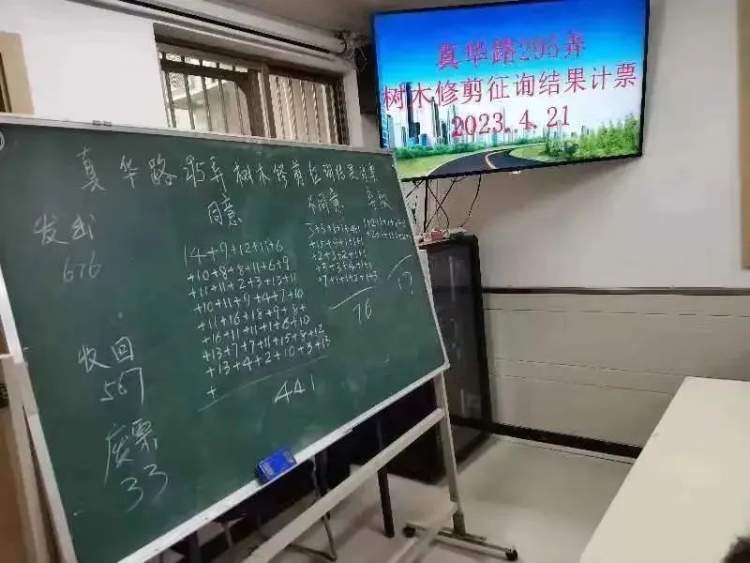 真华路295弄
树木修剪征询结果计票
2023.4.21
真华路295弄树木修剪征询结果计票
发出
676
收回
567
废票
33
同意
14+9+12+11+6
+10+8+8+11+6+9
+11+11+2+3+13+11
+10+11+9+4+7+10
+11+16+18+9+8+
+16+11+11+1+6+10
+13+7+7+11+15+8+12
+13+4+2+10+3+13
+
441
不同意
76
弃权
17